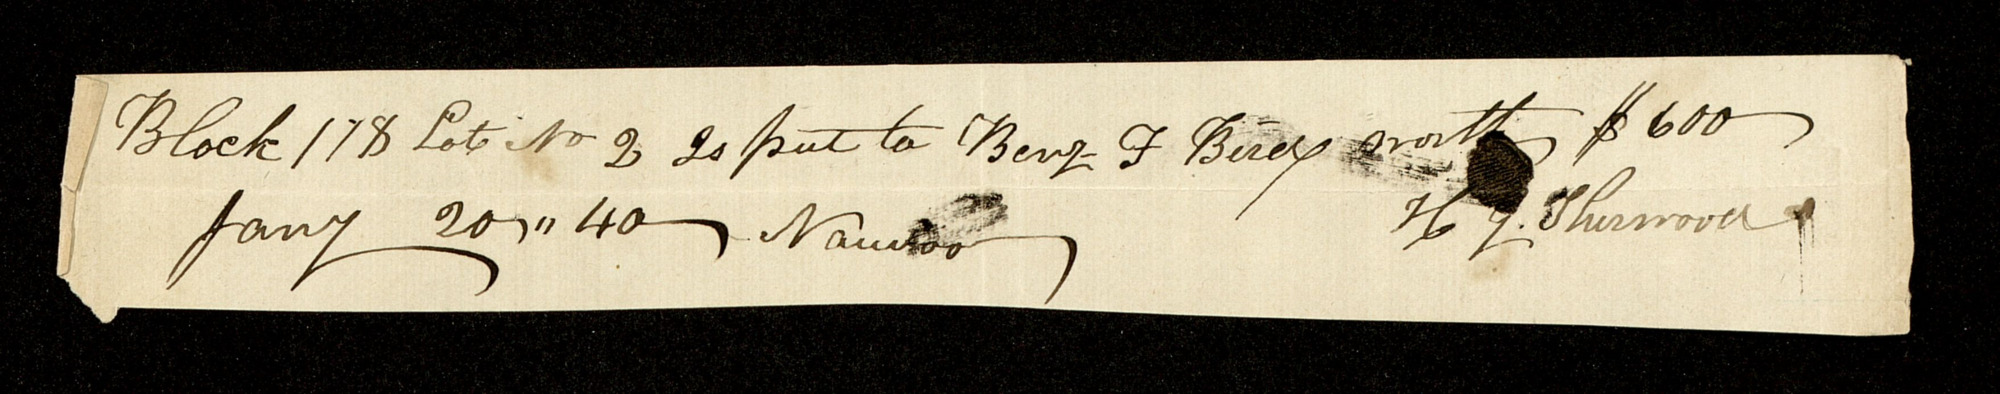 Block 118 Lot No 2 Is put to Benj F Bird worth $600
Jany 20,, 40 Nauvoo H G. Sherwood